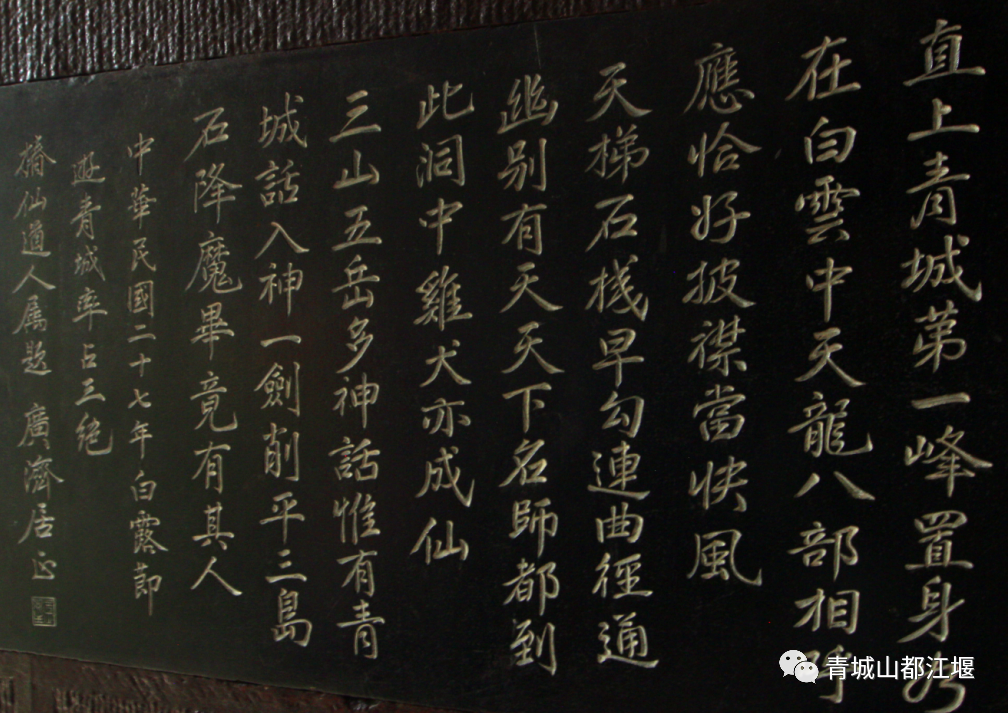 直上青城苐一峰置身
在白雲中天龍八部相呼
應恰好披襟當快風
天梯石棧早勾連曲徑通
幽别有天天下名師都到
此洞中雞犬亦成仙
三山五岳多神話惟有青
城話入神一劍削平三島
石降魔畢竟有其人
中華民國二十七年白露節
遊青城率占三絶
橋仙道人属题 廣濟居正
青城山都江堰